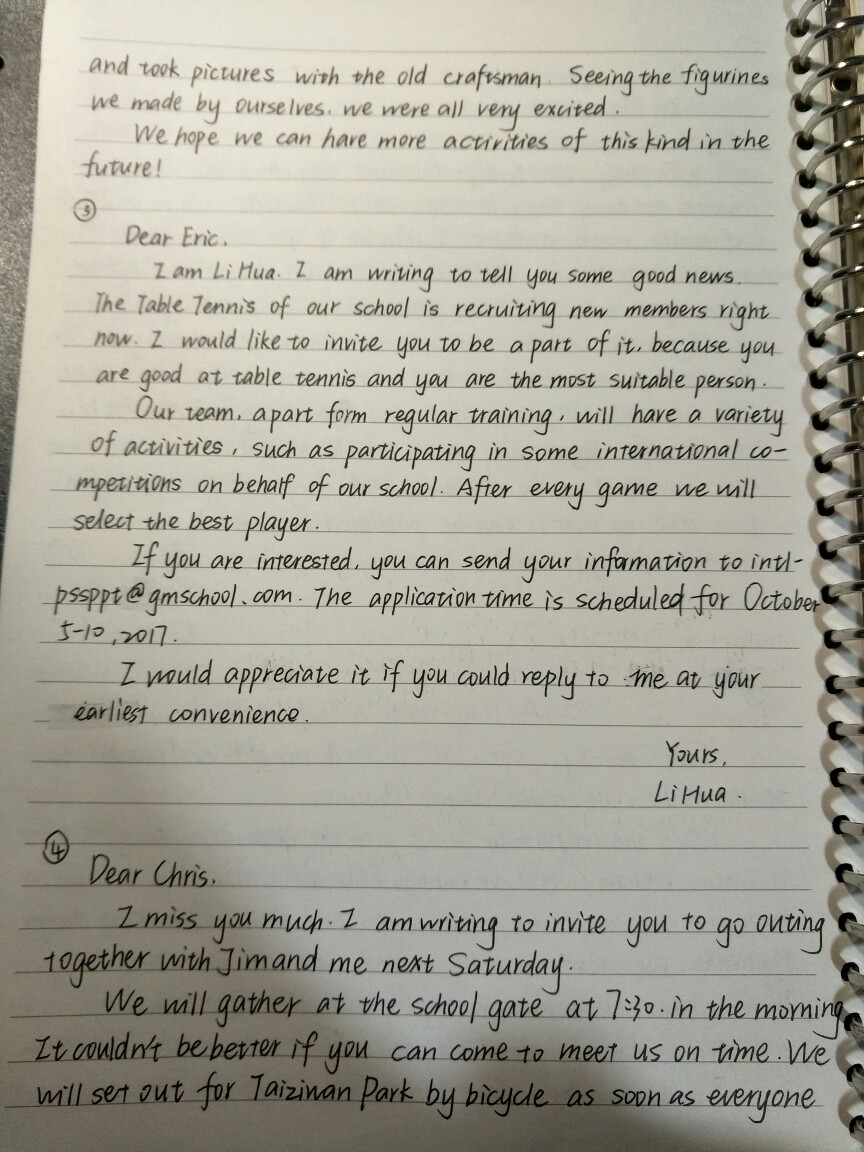 and took pictures with the old craftsman. Seeing the figurines
we made by ourselves, we were all very excited.
We hope we can have more activities of this kind in the
future!
③
Dear Eric,
I am Li Hua. I am writing to tell you some good news.
The Table Tennis of our school is recruiting new members right
now. I would like to invite you to be a part of it, because you
are good at table tennis and you are the most suitable person.
Our team, apart form regular training, will have a variety
of activities, such as participating in some international co-
mpetitions on behalf of our school. After every game we will
select the best player.
If you are interested, you can send your information to intl-
pssppt@gmschool.com. The application time is scheduled for October
5-10, 2017.
I would appreciate it if you could reply to me at your
earliest convenience.
Yours,
Li Hua.
④
Dear Chris,
I miss you much. I am writing to invite you to go outing
together with Jim and me next Saturday.
We will gather at the school gate at 7:30. in the morning
It couldn't be better if you can come to meet us on time. We
will set out for Taizinan Park by bicycle as soon as everyone